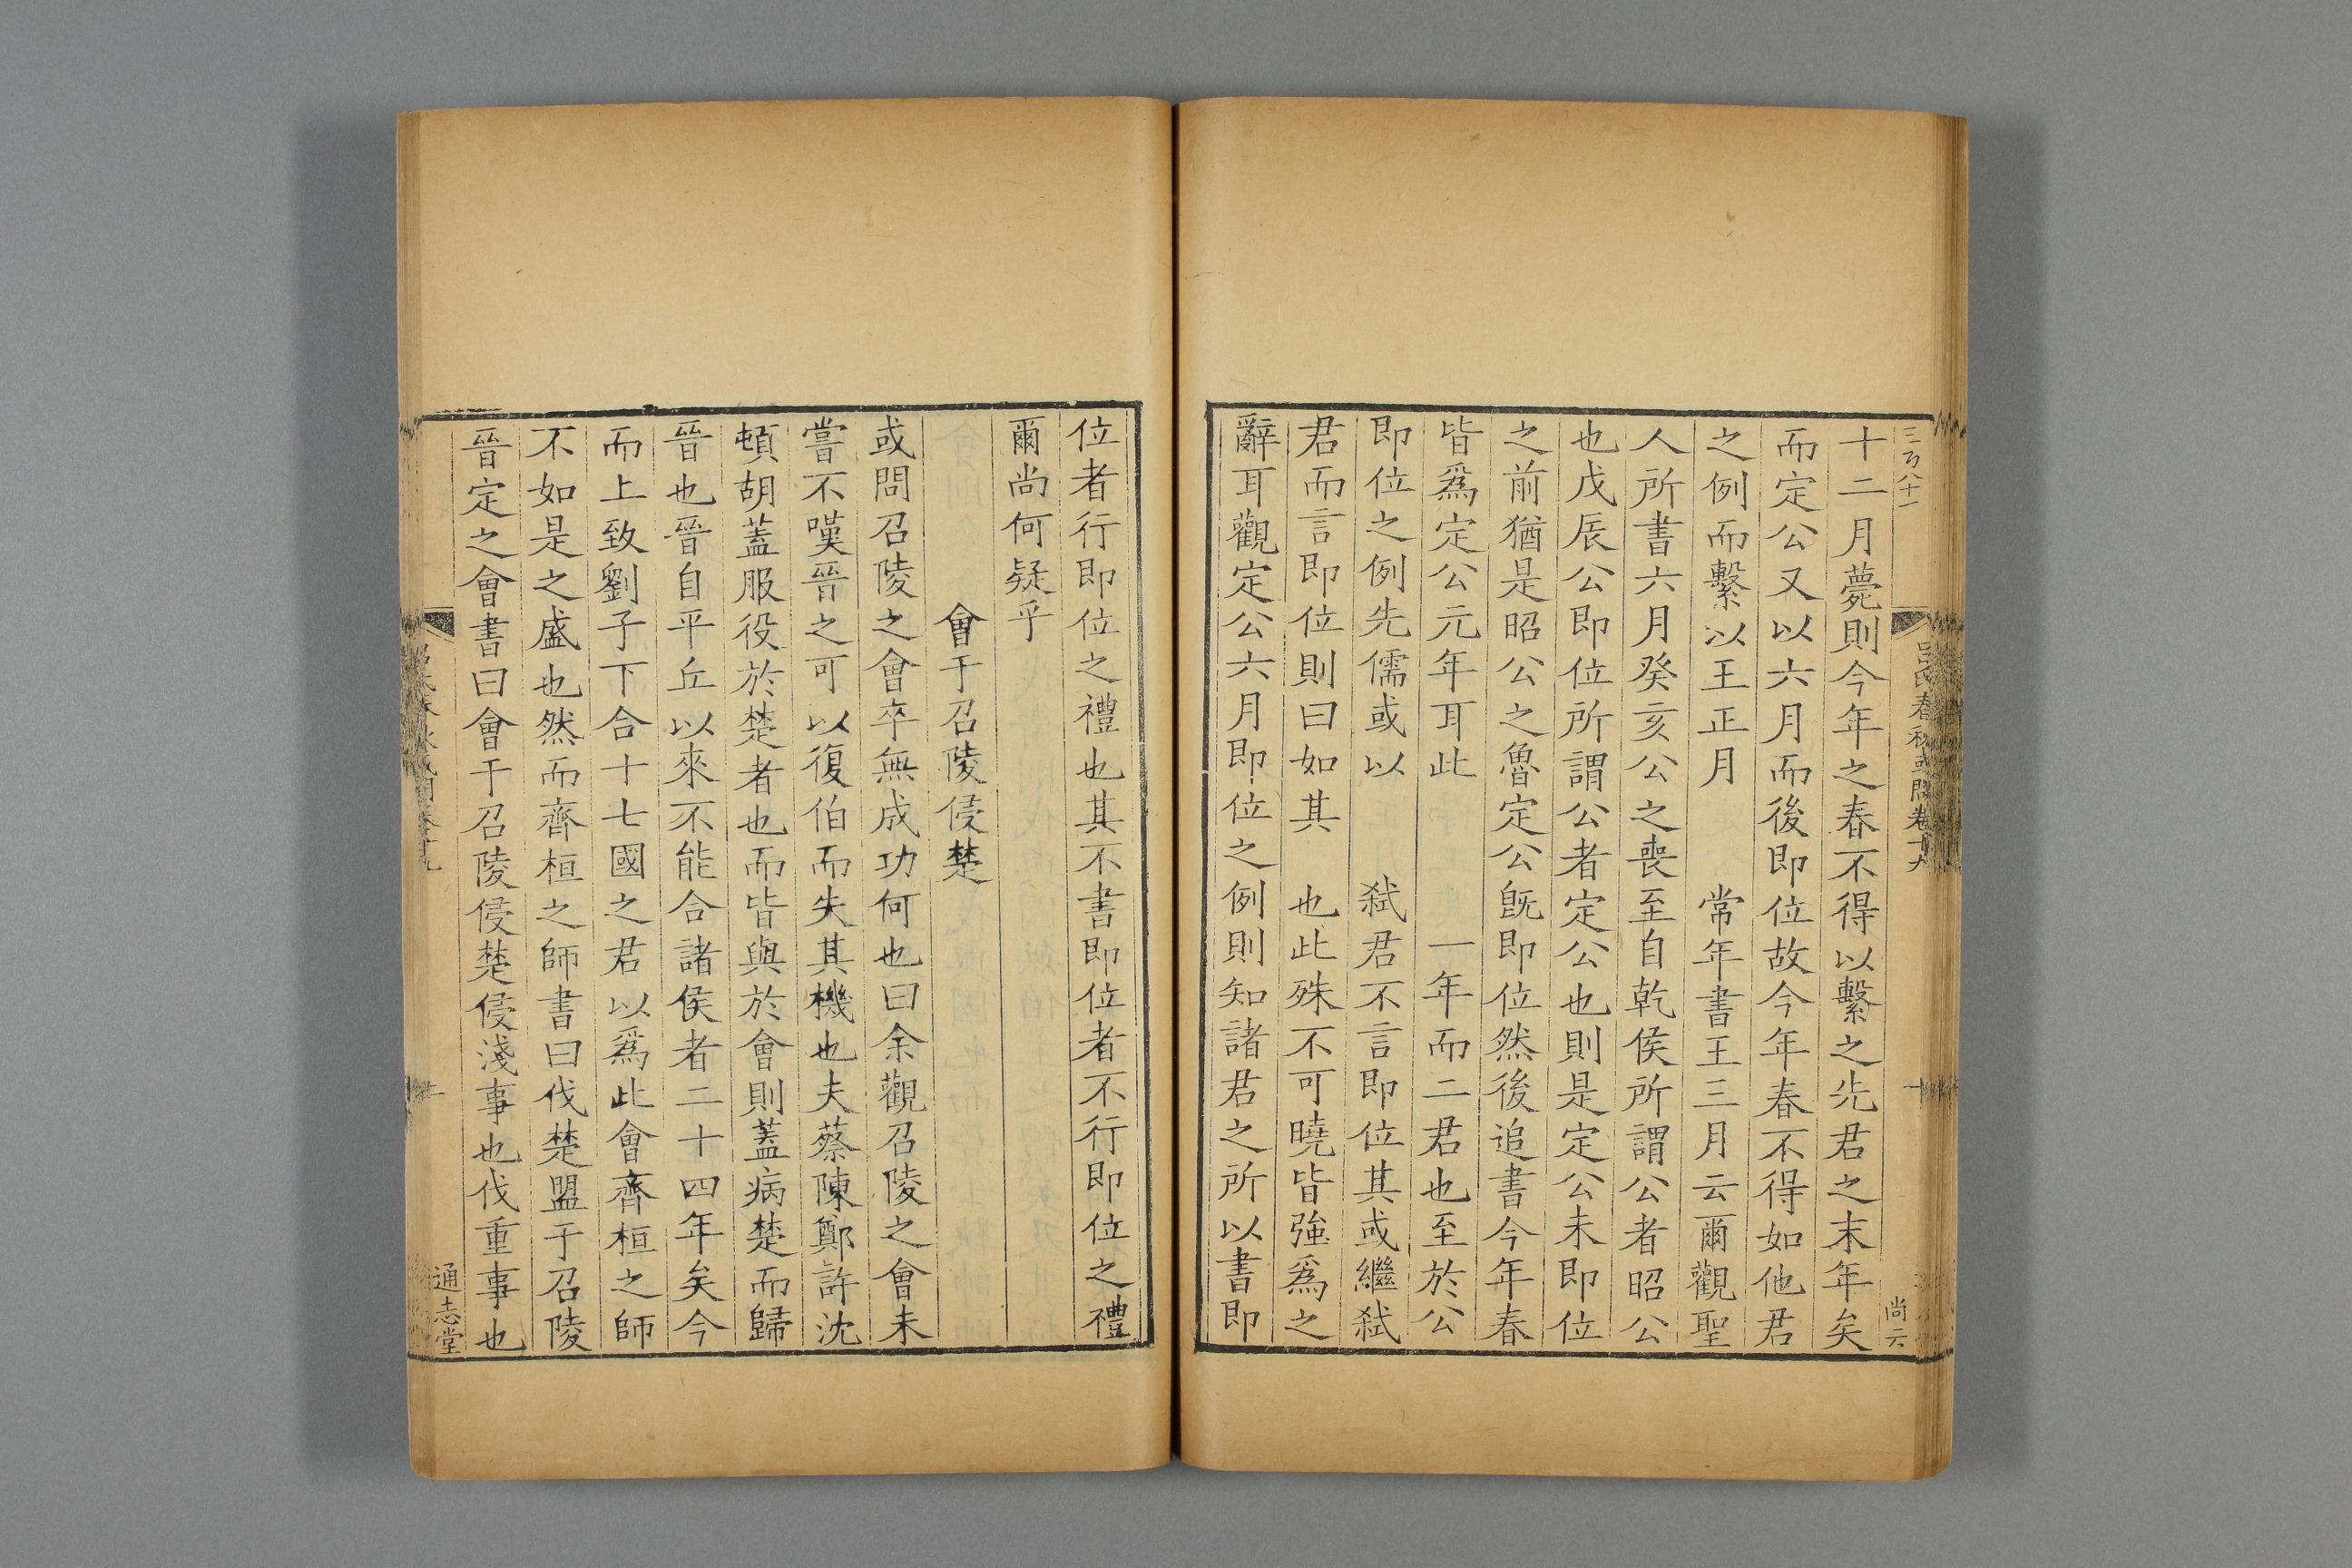 三百八十一
呂氏春秋或問卷十九
十
尚云
十二月薨則今年之春不得以繫之先君之末年矣
而定公又以六月而後即位故今年春不得如他君
之例而繫以王正月　　常年書王三月云爾觀聖
人所書六月癸亥公之喪至自乾侯所謂公者昭公
也戊辰公即位所謂公者定公也則是定公未即位
之前猶是昭公之魯定公旣即位然後追書今年春
皆爲定公元年耳此　　　一年而二君也至於公
即位之例先儒或以　　弑君不言即位其或繼弑
君而言即位則曰如其　也此殊不可曉皆強爲之
辭耳觀定公六月即位之例則知諸君之所以書即
位者行即位之禮也其不書即位者不行即位之禮
爾尚何疑乎
會于召陵侵楚
或問召陵之會卒無成功何也曰余觀召陵之會未
嘗不嘆晉之可以復伯而失其機也夫蔡陳鄭許沈
頓胡蓋服役於楚者也而皆與於會則蓋病楚而歸
晉也晉自平丘以來不能合諸侯者二十四年矣今
而上致劉子下合十七國之君以爲此會齊桓之師
不如是之盛也然而齊桓之師書曰伐楚盟于召陵
晉定之會書曰會于召陵侵楚侵淺事也伐重事也
通志堂